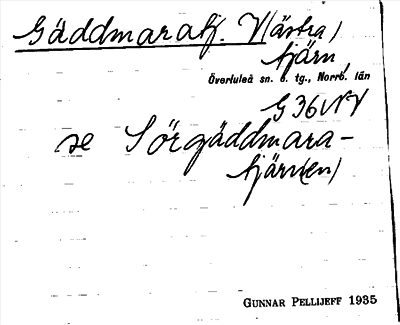 Gäddmaratj. V(ästra)
tjärn,
Överluleå sn. ö. tg., Norrb. län
G 36 NV
se Sörgäddmara-
tjärn(en)
GUNNAR PELLIJEFF 1935